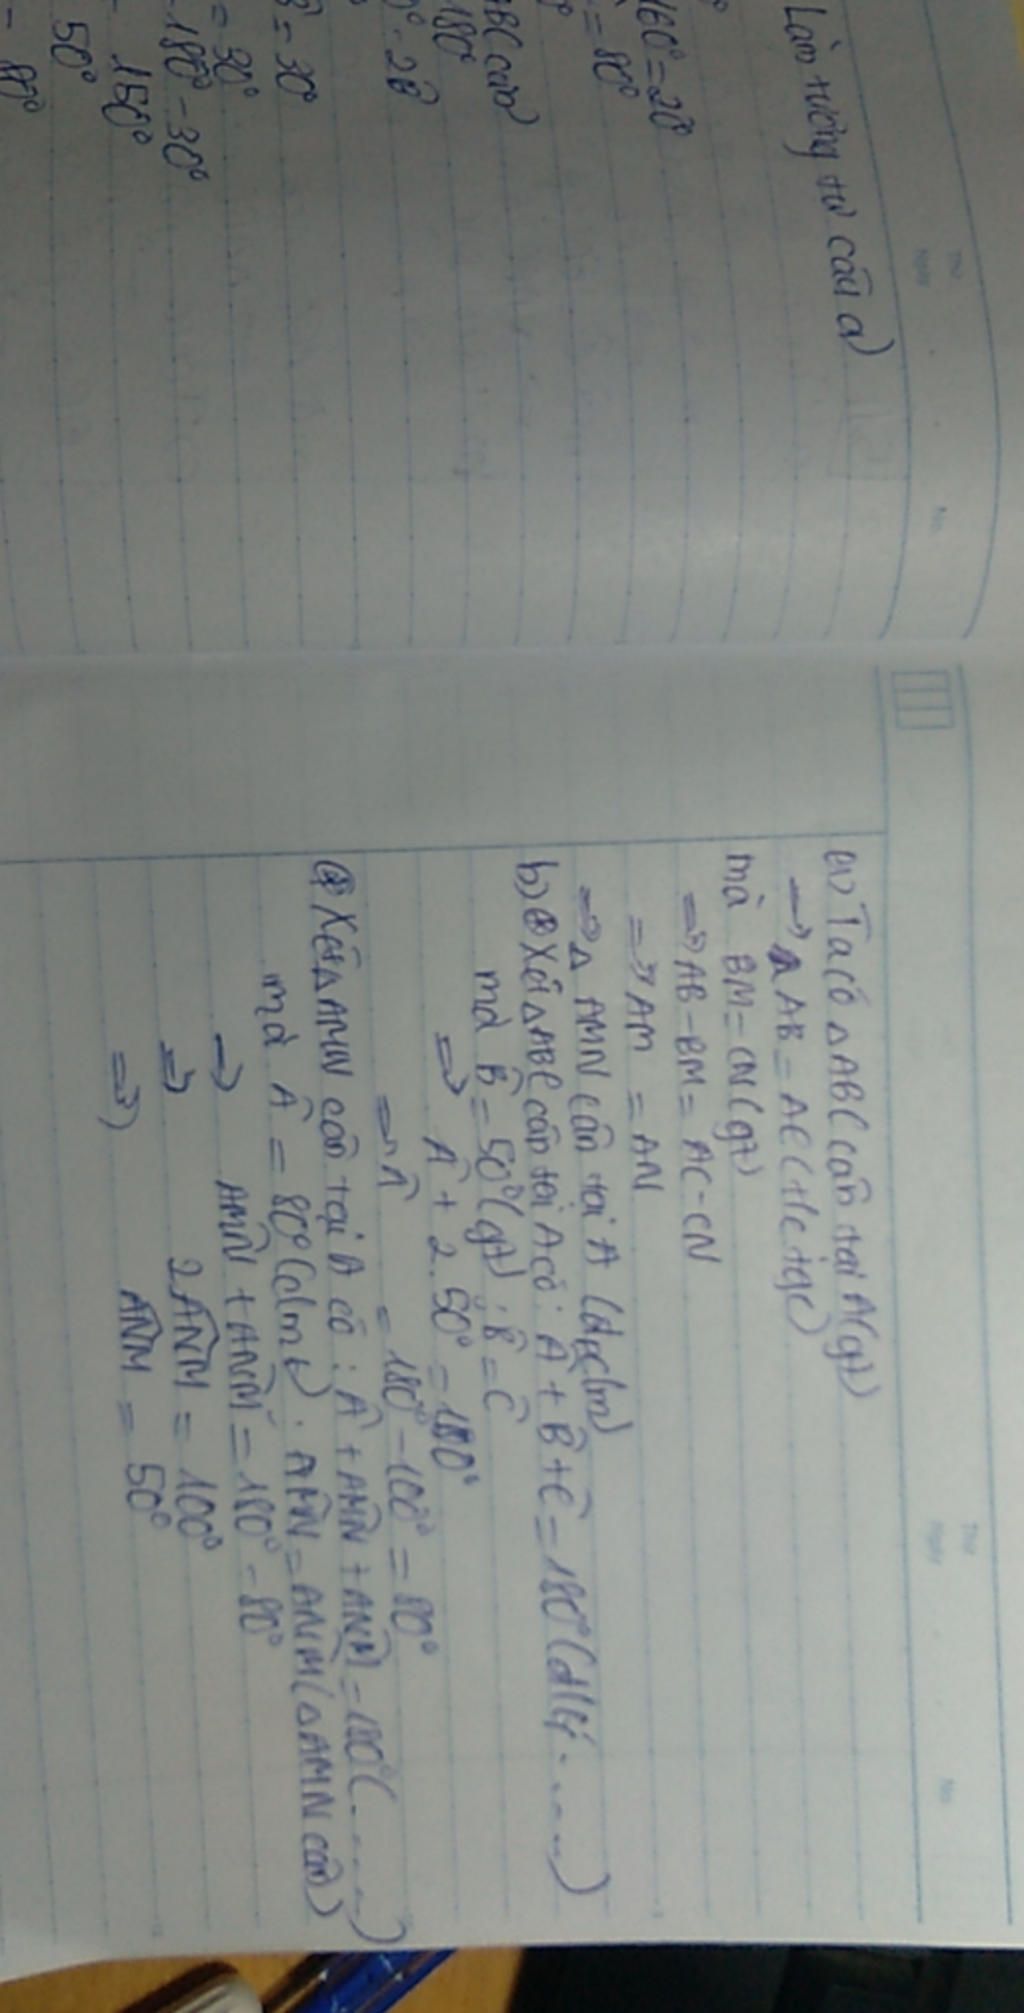 Làm tương tự câu a)
160° = 20°
= 80°
ABC cân
180°
° - 2B̂
B̂ = 30°
= 30°
180° - 30°
150°
50°
80°
a) Ta có △ABC cân tại A (gt)
→ AB = AC (t/c tgc)
mà BM = CN (gt)
⇒ AB - BM = AC - CN
⇒ AM = AN
⇒ △ AMN cân tại A (đpcm)
b) ⊛ Xét △ABC cân tại A có: Â + B̂ + Ĉ = 180° (đlí.....)
mà B̂ = 50° (gt); B̂ = Ĉ
⇒ Â + 2.50° = 180°
⇒ Â = 180° - 100° = 80°
⊛ Xét △AMN cân tại A có: Â + AM̂N + AN̂M = 180° (.....)
mà Â = 80° (cmt); AM̂N = AN̂M (△AMN cân)
→ AM̂N + AN̂M = 180° - 80°
⇒ 2AN̂M = 100°
⇒ AN̂M = 50°